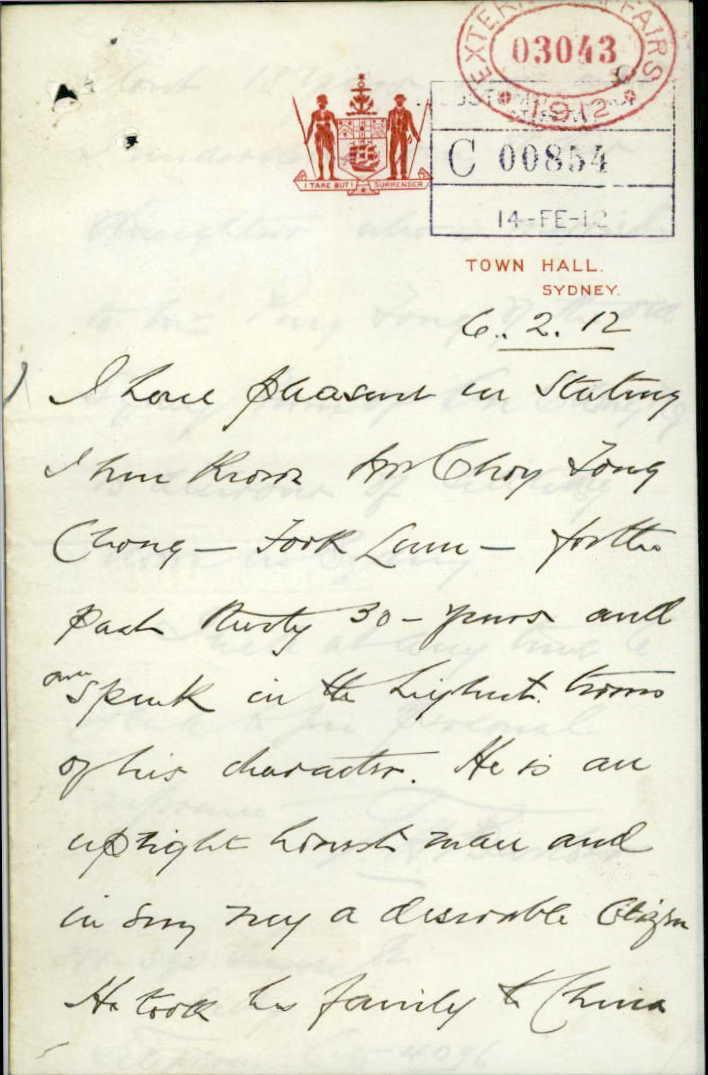 EXTERNAL AFFAIRS
03043
1912
C 00854
14-FE-12
I TAKE BUT I SURRENDER
TOWN HALL.
SYDNEY.
6. 2. 12
I have pleasure in Stating
I have Known Mr Choy Fong
Chong - Fook Lunn - for the
past thirty 30 - years and
can speak in the highest terms
of his character. He is an
upright honest man and
in every way a desirable Citizen
He took his family to China